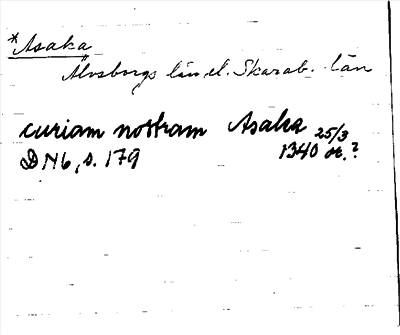 *Asaka
Älvsborgs län el. Skarab. län
curiam nostram Asaka 25/3
DN6, s. 179 1340 or.?